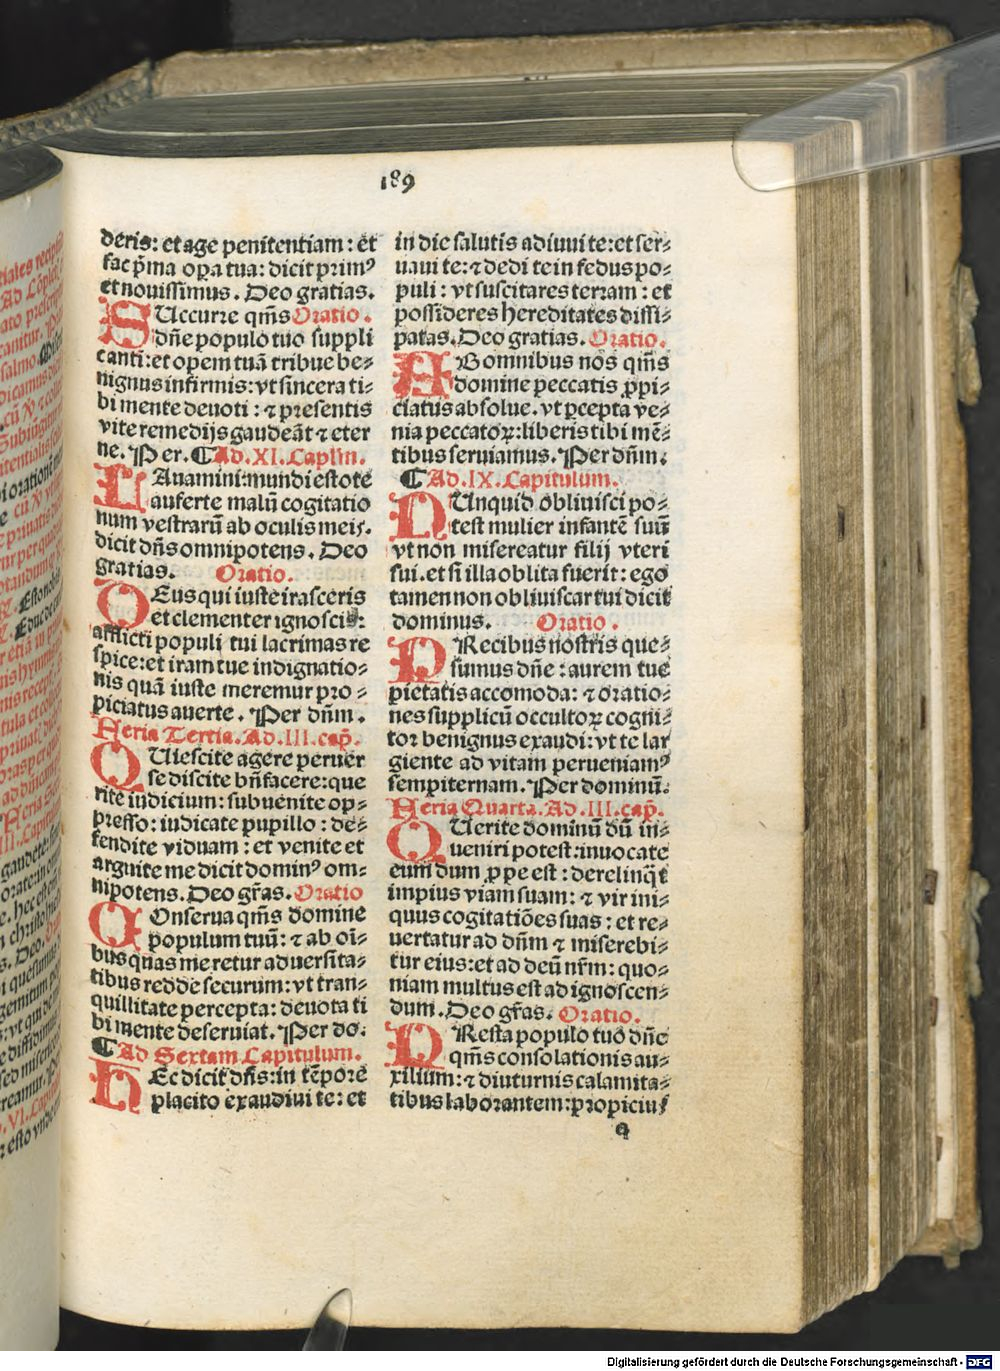 189
deris: et age penitentiam: et
fac p̄ma oꝑa tua: dicit primꝰ
et nouissimus. Deo gratias.
SUccurre qm̄s Oratio.
dn̄e populo tuo suppli
canti: et opem tuā tribue be⸗
nignus infirmis: vt sincera ti⸗
bi mente deuoti: ⁊ presentis
vite remedijs gaudeāt ⁊ eter
ne. Per. ¶ Ad. XI. Caplm̄.
LAuamini: mundi estote
auferte malū cogitatio
num vestrarū ab oculis meis.
dicit dn̄s omnipotens. Deo
gratias. Oratio.
DEus qui iuste irasceris
et clementer ignoscis:
afflicti populi tui lacrimas re
spice: et iram tue indignatio⸗
nis quā iuste meremur pro⸗
piciatus auerte. Per dn̄m.
Feria Tertia. Ad. III. cap̄.
QUiescite agere peruer
se discite bn̄facere: que
rite iudicium: subuenite op⸗
presso: iudicate pupillo: de⸗
fendite viduam: et venite et
arguite me dicit dominꝰ om⸗
nipotens. Deo gr̄as. Oratio
COnserua qm̄s domine
populum tuū: ⁊ ab oī⸗
bus quas meretur aduersita⸗
tibus redde securum: vt tran⸗
quillitate percepta: deuota ti
bi mente deseruiat. Per do.
¶ Ad Sextam Capitulum.
HEc dicit dn̄s: in tēpore
placito exaudiui te: et
in die salutis adiuui te: et ser⸗
uaui te: ⁊ dedi te in fedus po⸗
puli: vt suscitares terram: et
possideres hereditates dissi⸗
patas. Deo gratias. Oratio.
AB omnibus nos qm̄s
domine peccatis ꝓpi⸗
ciatus absolue. vt ꝑcepta ve⸗
nia peccatoꝝ: liberis tibi mē⸗
tibus seruiamus. Per dn̄m.
¶ Ad. IX. Capitulum.
NUnquid obliuisci po⸗
test mulier infantē suū
vt non misereatur filij vteri
sui. et si illa oblita fuerit: ego
tamen non obliuiscar tui dicit
dominus. Oratio.
PRecibus nostris que⸗
sumus dn̄e: aurem tue
pietatis accomoda: ⁊ oratio⸗
nes supplicū occultoꝝ cogni⸗
tor benignus exaudi: vt te lar
giente ad vitam perueniamꝰ
sempiternam. Per dominū.
Feria Quarta. Ad. III. cap̄.
QUerite dominū dū in⸗
ueniri potest: inuocate
eum dum ꝓpe est: derelinq̄t
impius viam suam: ⁊ vir ini⸗
quus cogitatiōes suas: et re⸗
uertatur ad dn̄m ⁊ miserebi⸗
tur eius: et ad deū nr̄m: quo⸗
niam multus est ad ignoscen⸗
dum. Deo gr̄as. Oratio.
PResta populo tuo dn̄e
qm̄s consolationis au⸗
xilium: ⁊ diuturnis calamita⸗
tibus laborantem: propicius
q
Digitalisierung gefördert durch die Deutsche Forschungsgemeinschaft - DFG